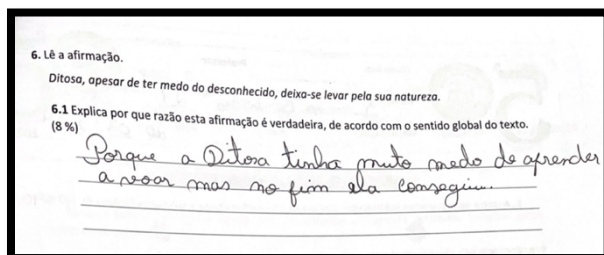 6. Lê a afirmação.
Ditosa, apesar de ter medo do desconhecido, deixa-se levar pela sua natureza.
6.1 Explica por que razão esta afirmação é verdadeira, de acordo com o sentido global do texto.
(8 %)
Porque a Ditosa tinha muto medo de aprender
a voar mas no fim ela consegiu.